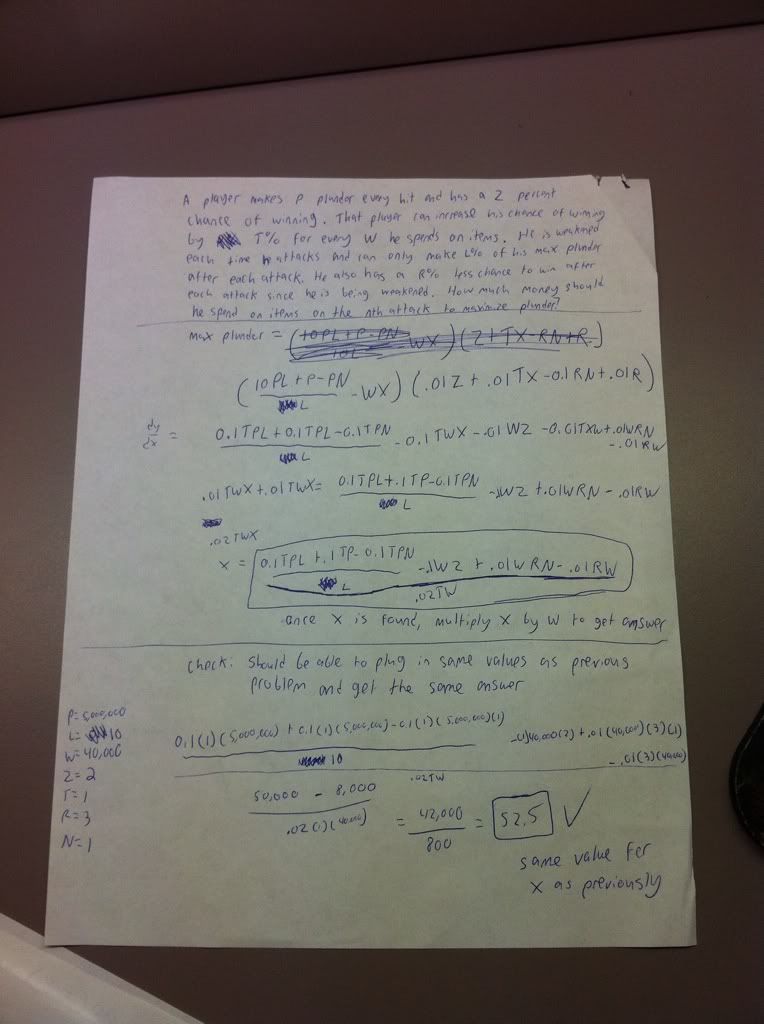 A player makes P plunder every hit and has a Z percent
chance of winning. That player can increase his chance of winning
by T% for every W he spends on items. He is weakened
each time he attacks and can only make L% of his max plunder
after each attack. He also has a R% less chance to win after
each attack since he is being weakened. How much money should
he spend on items on the nth attack to maximize plunder?
max plunder = (10PL+P-PN WX)(Z+TX-RN+R)
(10PL+P-PN / L - WX) (.01Z + .01TX -0.1RN +.01R)
dy/dx = 0.1TPL+0.1PL-0.1TPN / L -0.1TWX -.01WZ -0.01TXW+.01WRN -.01RW
.01TWX+.01TWX= 0.1TPL+.1TP-0.1TPN / L -.1WZ +.01WRN -.01RW
.02TWX
X = 0.1TPL +.1TP -0.1TPN / L -.1WZ +.01WRN -.01RW / .02TW
once X is found, multiply X by W to get answer
Check: Should be able to plug in same values as previous
problem and get the same answer
P=5,000,000
L=10
W=40,000
Z=2
T=1
R=3
N=1
0.1(1)(5,000,000) + 0.1(1)(5,000,000)-0.1(1)(5,000,000)(1) / 10 -.01)40,000(2) +.01(40,000)(3)(1) -.01(3)(40,000)
.02TW
50,000 - 8,000 / .02(1)(40,000) = 42,000 / 800 = 52.5 ✓
same value for
X as previously